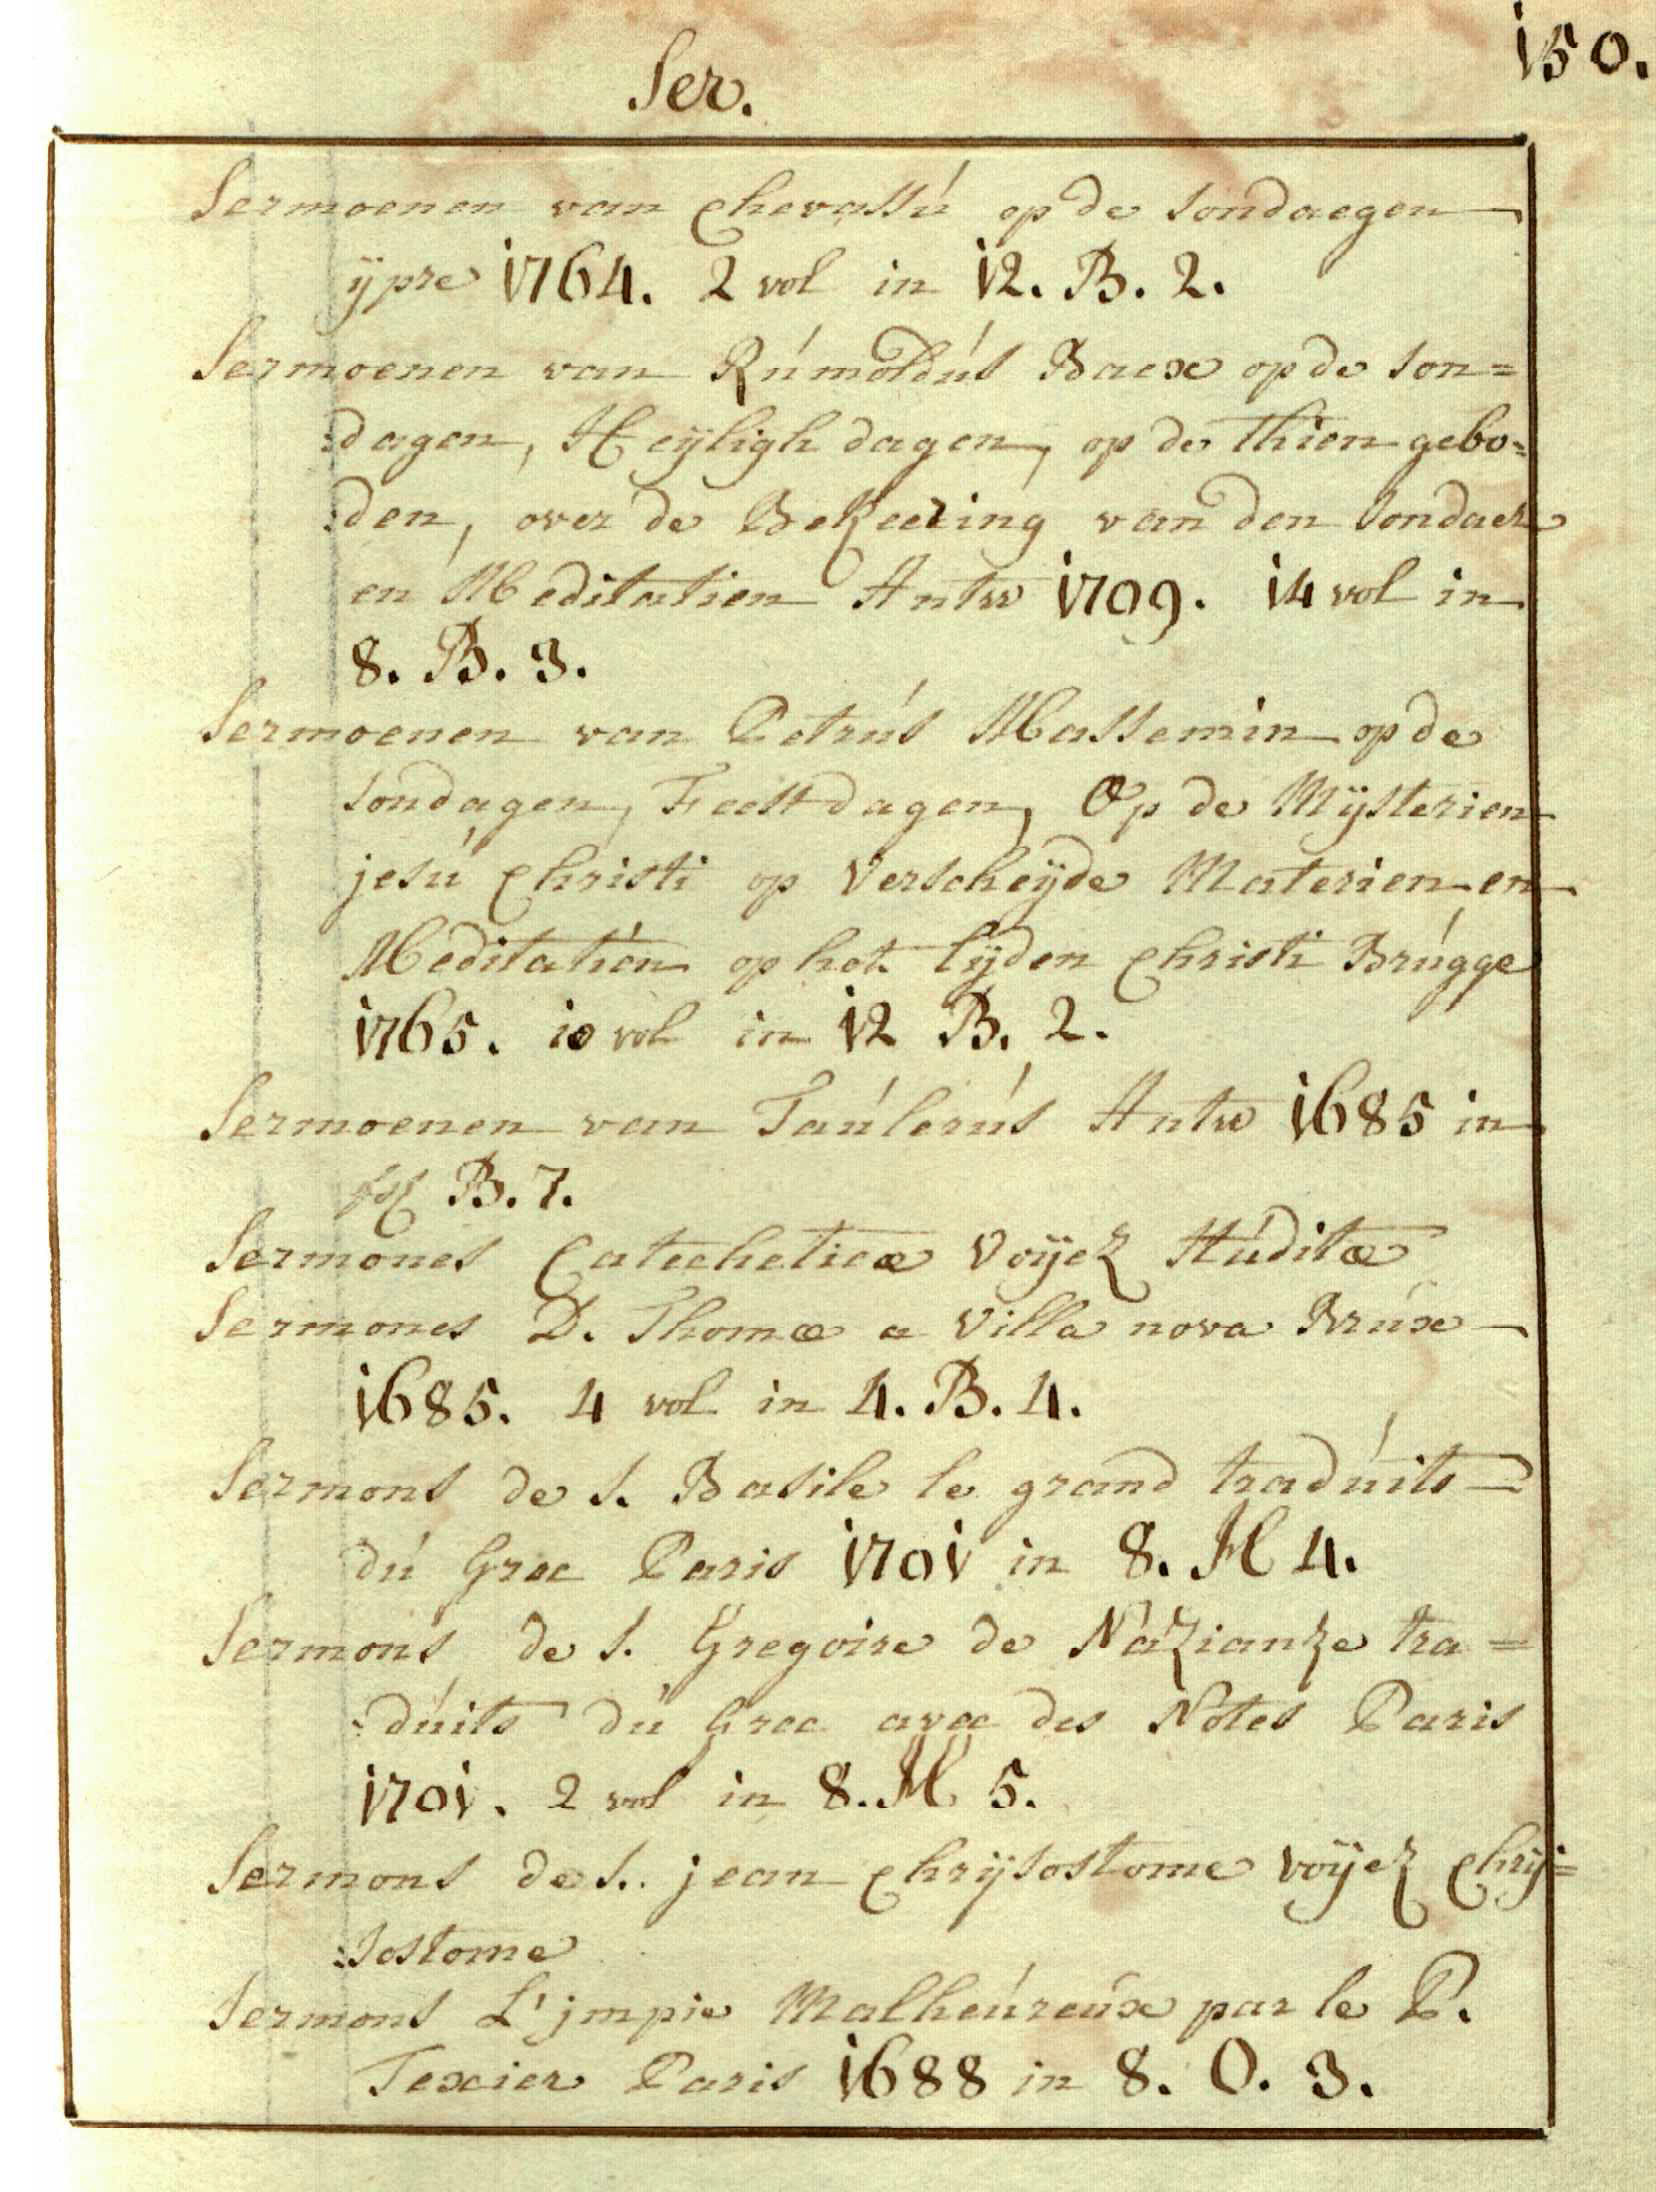 150.
Ser.
Sermoenen van Chevassú op de sondaegen
ÿpre 1764. 2 vol in 12. B. 2.
Sermoenen van Rúmoldús Baex op de son=
:dagen, Heÿligh dagen, op de thien gebo=
:den, over de Bekeering van den sondaer
en Meditatien Antw 1709. 14 vol in
8. B. 3.
Sermoenen van Petrús Massemin op de
sondagen, Feestdagen, Op de Mÿsterien
jesú Christi op Verscheÿde Materien en
Meditatien op het lÿden Christi Brúgge
1765. 10 vol in 12 B. 2.
Sermoenen van Taúlerús Antw 1685 in
fol B. 7.
Sermones Catecheticæ Voÿez Stúditæ
Sermones D. Thomæ a Villa nova Brúx
1685. 4 vol in 4. B. 4.
Sermons de S. Basile le grand tradúits
dú Grec Paris 1701 in 8. M 4.
Sermons de S. Gregoire de Nazianze tra=
:dúits dú Grec avec des Notes Paris
1701. 2 vol in 8. M 5.
Sermons de S. jean Chrÿsostome voÿez Chrÿ=
:sostome
Sermons L'jmpie Malheúreúx par le P.
Texier Paris 1688 in 8. O. 3.